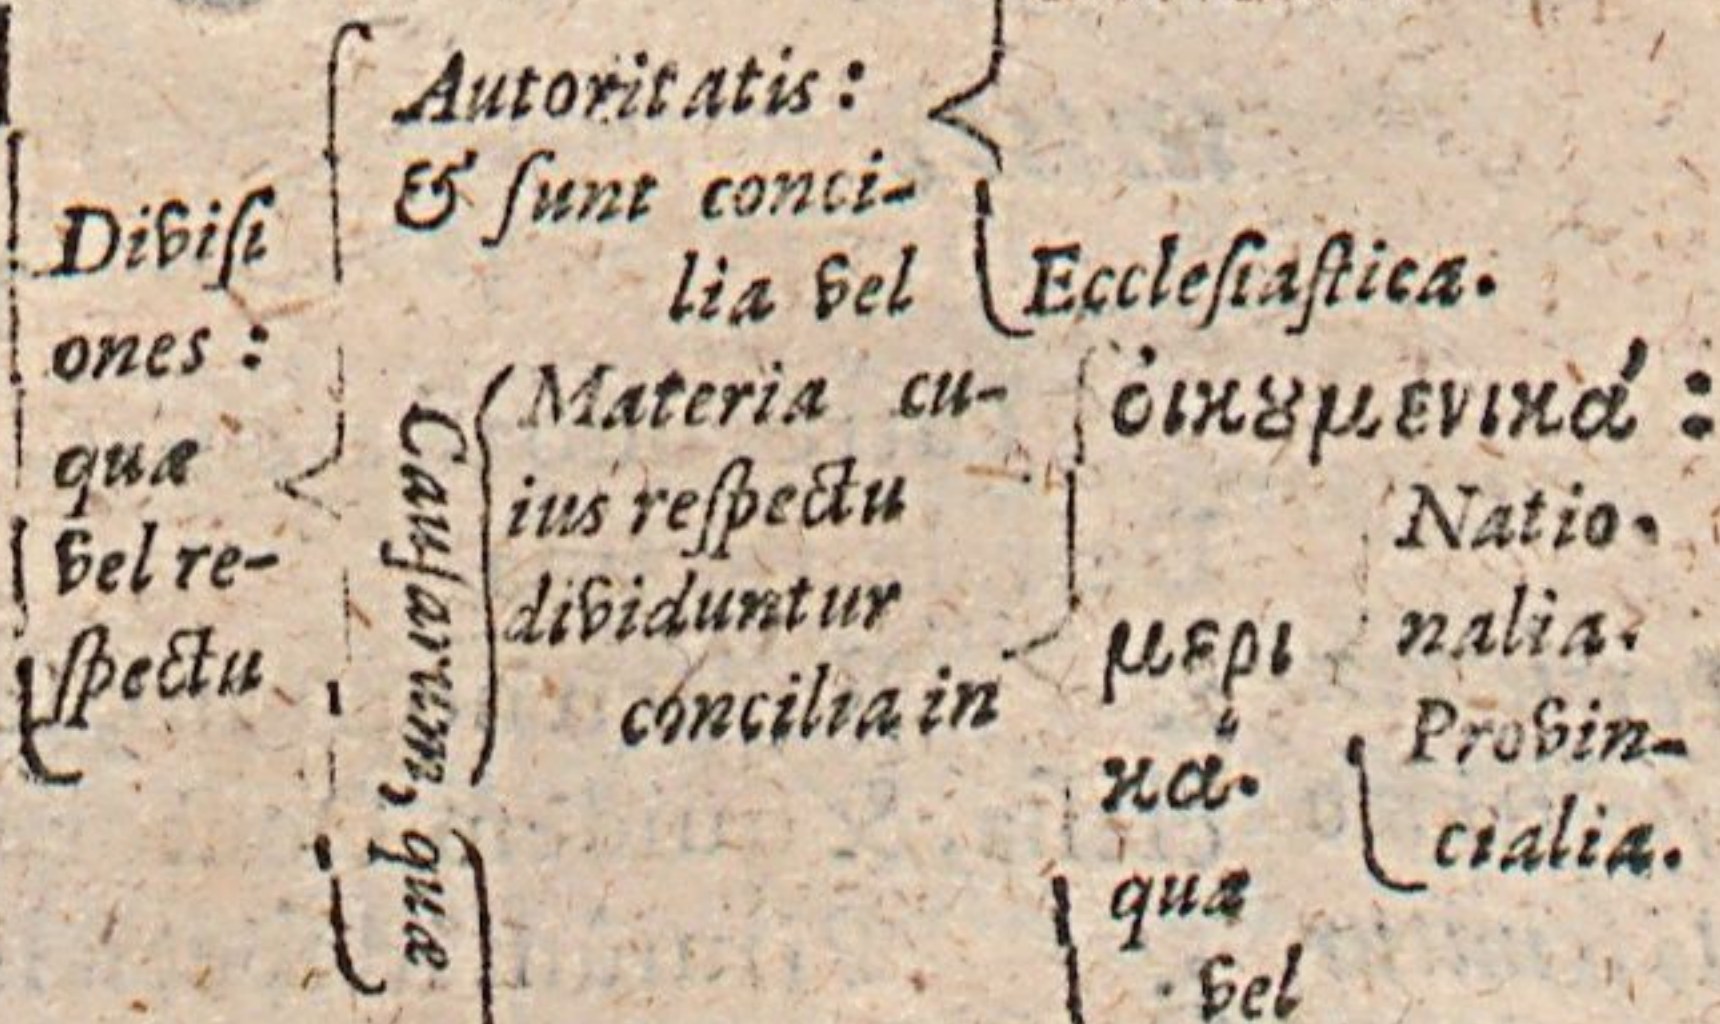 Diviſi
ones :
quæ
vel re-
ſpectu
Autoritatis :
& ſunt conci-
lia vel
Eccleſiaſtica.
Cauſarum, quæ
Materia cu-
ius reſpectu
dividuntur
concilia in
ὀικȣμενικά :
μερι
κά.
quæ
vel
Natio-
nalia.
Provin-
cialia.